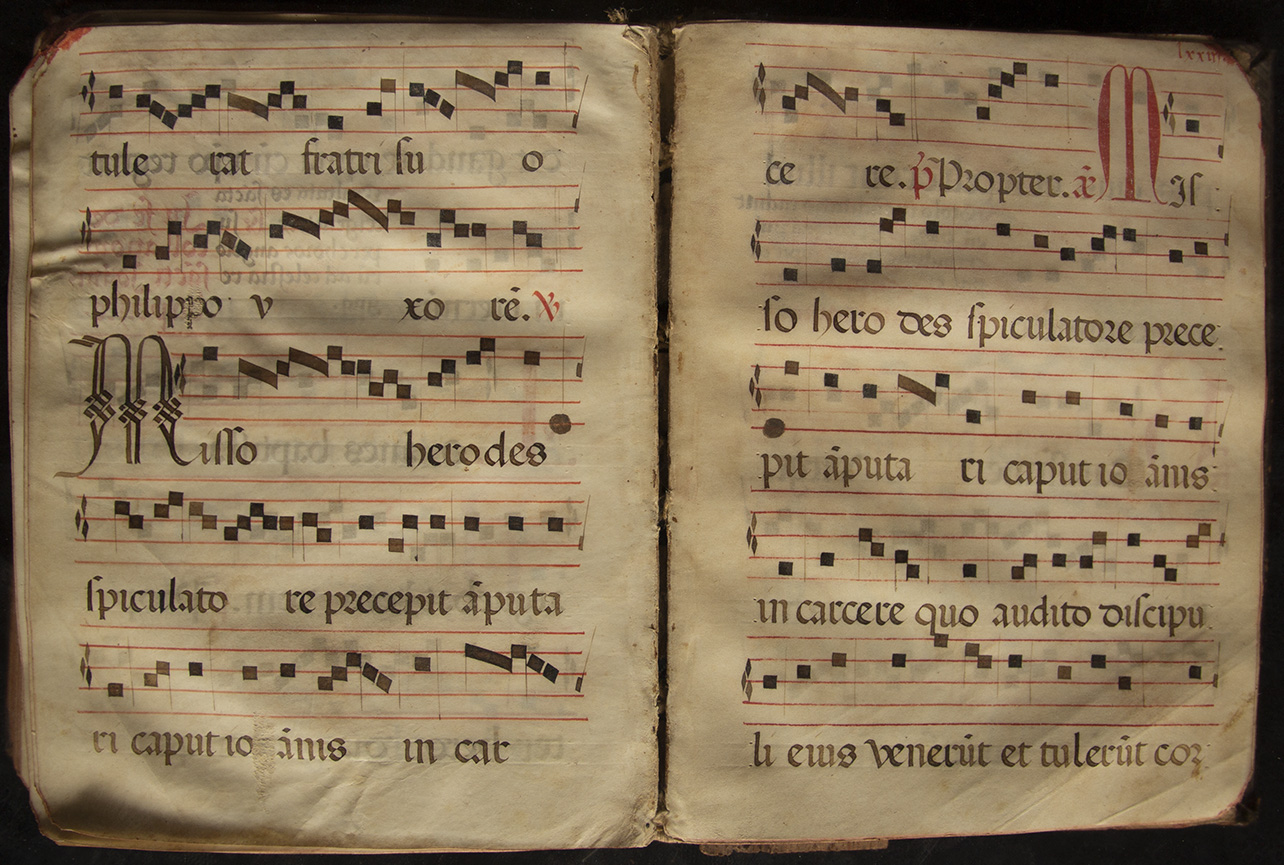 tule rat fratri su o
philippo v xo rē. ℣
Misso herodes
spiculato re precepit āputa
ri caput io ānis in car
ce re. p̄ Propter. Mis
so hero des spiculatore prece
pit āputa ri caput io ānis
in carcere quo audito discipu
li eius venerūt et tulerūt cor